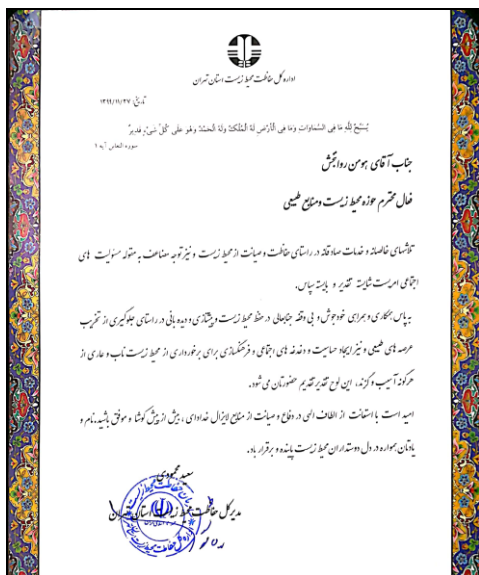 اداره کل حفاظت محیط زیست استان تهران
تاریخ: ۱۳۹۹/۱۱/۲۷
یُسَبِّحُ لِلَّهِ مَا فِی السَّمَاوَاتِ وَمَا فِی الْأَرْضِ لَهُ الْمُلْکُ وَلَهُ الْحَمْدُ وَهُوَ عَلَى کُلِّ شَیْءٍ قَدِیرٌ
سوره التغابن آیه ۱
جناب آقای هومن روانبخش
فعال محترم حوزه محیط زیست و منابع طبیعی
تلاشهای خالصانه و خدمات صادقانه در راستای حفاظت و صیانت از محیط زیست و نیز توجه مضاعف به مقوله مسئولیت های
اجتماعی امریست شایسته تقدیر و بایسته سپاس.
به پاس همکاری و همراهی خودجوش و بی وقفه جنابعالی در حفظ محیط زیست و پیشتازی و دیده بانی در راستای جلوگیری از تخریب
عرصه های طبیعی و نیز ایجاد حساسیت و دغدغه های اجتماعی و فرهنگسازی برای برخورداری از محیط زیست ناب و عاری از
هرگونه آسیب و گزند، این لوح تقدیر تقدیم حضورتان می شود.
امید است با استعانت از الطاف الهی در دفاع و صیانت از منابع لایزال خدادادی، بیش از پیش کوشا و موفق باشید. نام و
یادتان همواره در دل دوستداران محیط زیست پاینده و برقرار باد.
سعید محمودی
مدیرکل حفاظت محیط زیست استان تهران